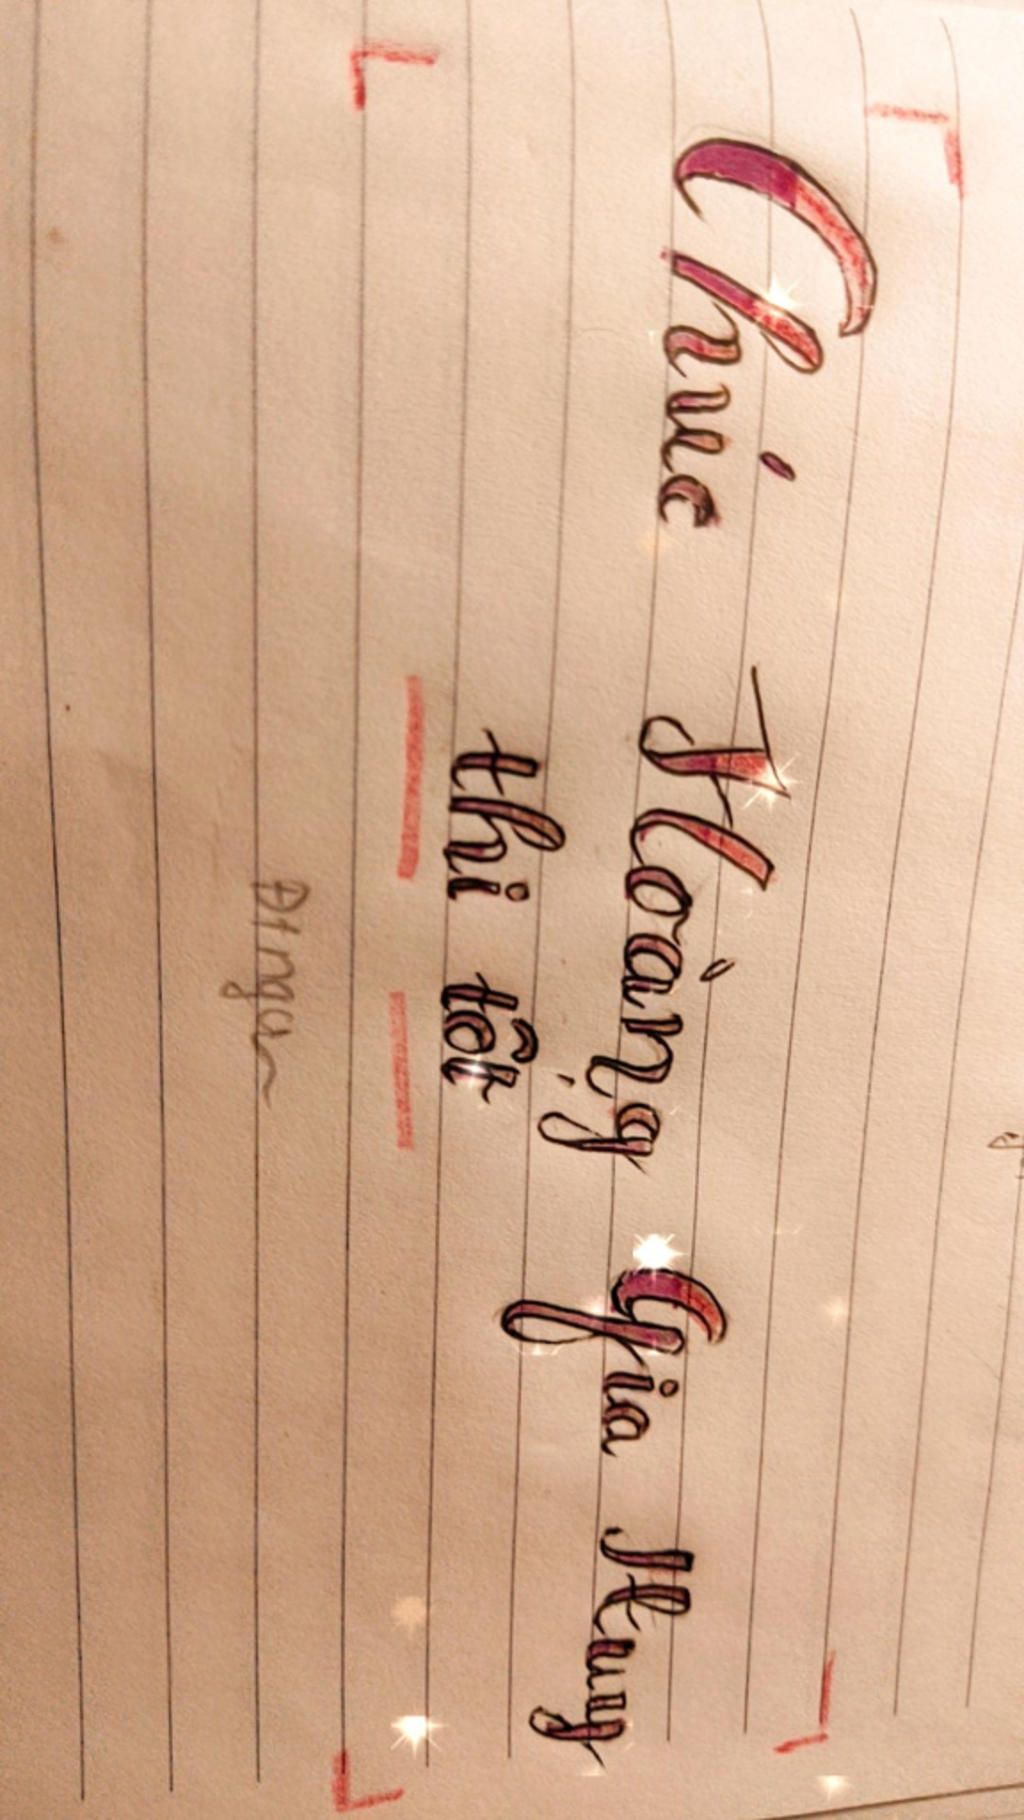 Chúc Hoàng Gia Huy
thi tốt